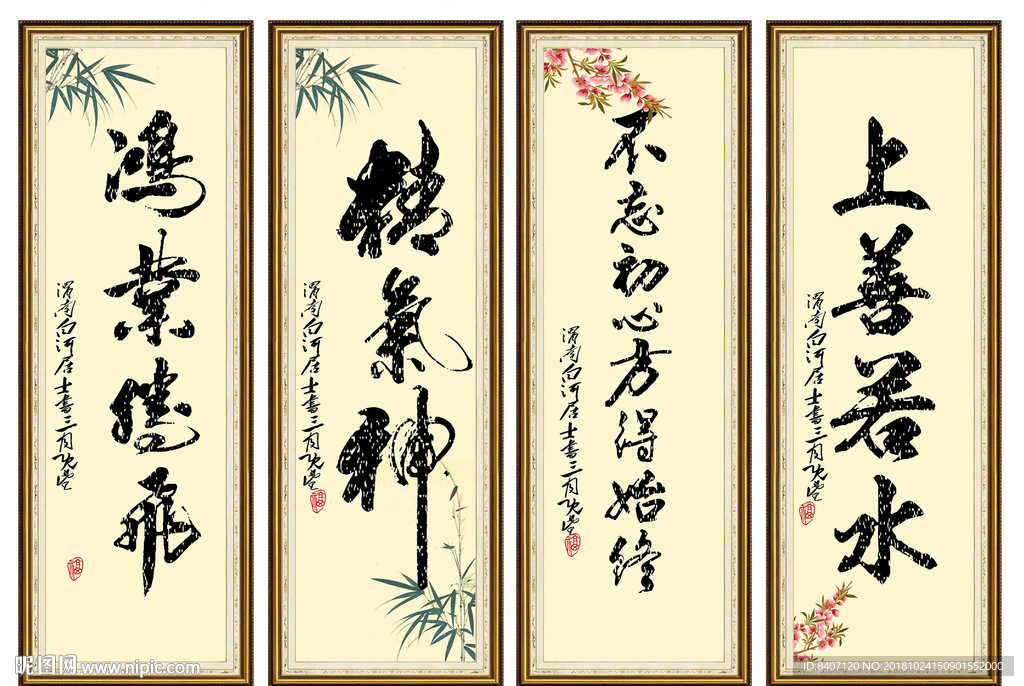 鸿业腾飞
渭南白河居士书三月
福
精气神
渭南白河居士书三月
福
不忘初心方得始终
渭南白河居士书三月
福
上善若水
渭南白河居士书三月
福
昵图网 www.nipic.com
ID:8407120 NO:20181024150901552000